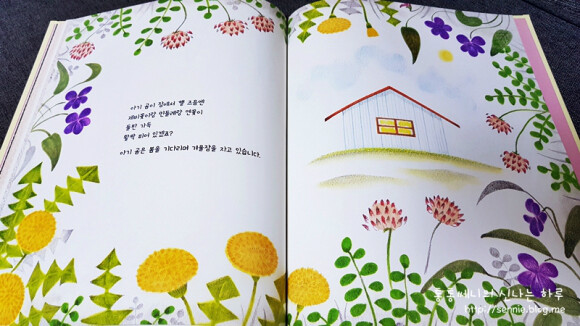 아기 곰이 잠에서 깰 즈음엔
제비꽃이랑 민들레랑 연꽃이
들판 가득
활짝 피어 있겠죠?
아기 곰은 봄을 기다리며 겨울잠을 자고 있습니다.
통통쎄니의 신나는 하루
http://sennie.blog.me